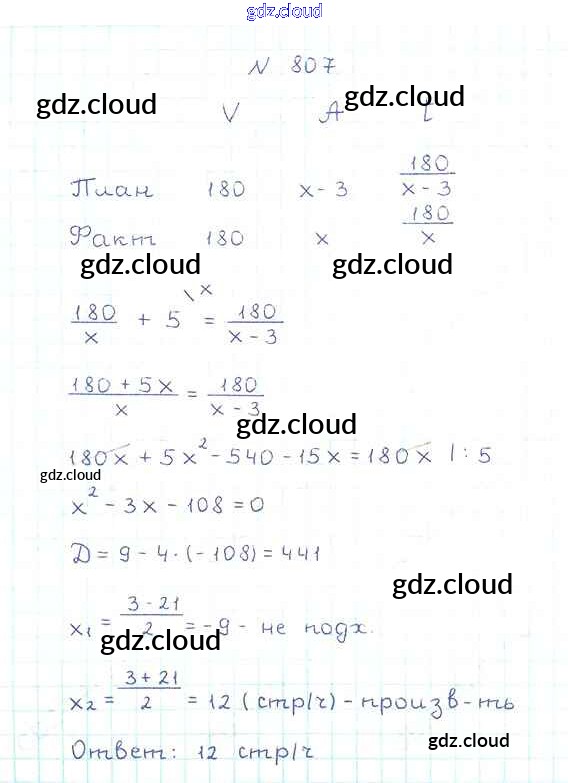 gdz.cloud
N 807
gdz.cloud gdz.cloud
V A t
План 180 x-3 180/(x-3)
Факт 180 x 180/x
gdz.cloud gdz.cloud
180/x + 5 \x = 180/(x-3)
(180+5x)/x = 180/(x-3)
gdz.cloud
180x + 5x² - 540 - 15x = 180x |:5
gdz.cloud
x² - 3x - 108 = 0
D = 9 - 4·(-108) = 441
gdz.cloud
x₁ = (3-21)/2 = -9 - не подх.
gdz.cloud
x₂ = (3+21)/2 = 12 (стр/ч) - произв-ть
Ответ: 12 стр/ч
gdz.cloud